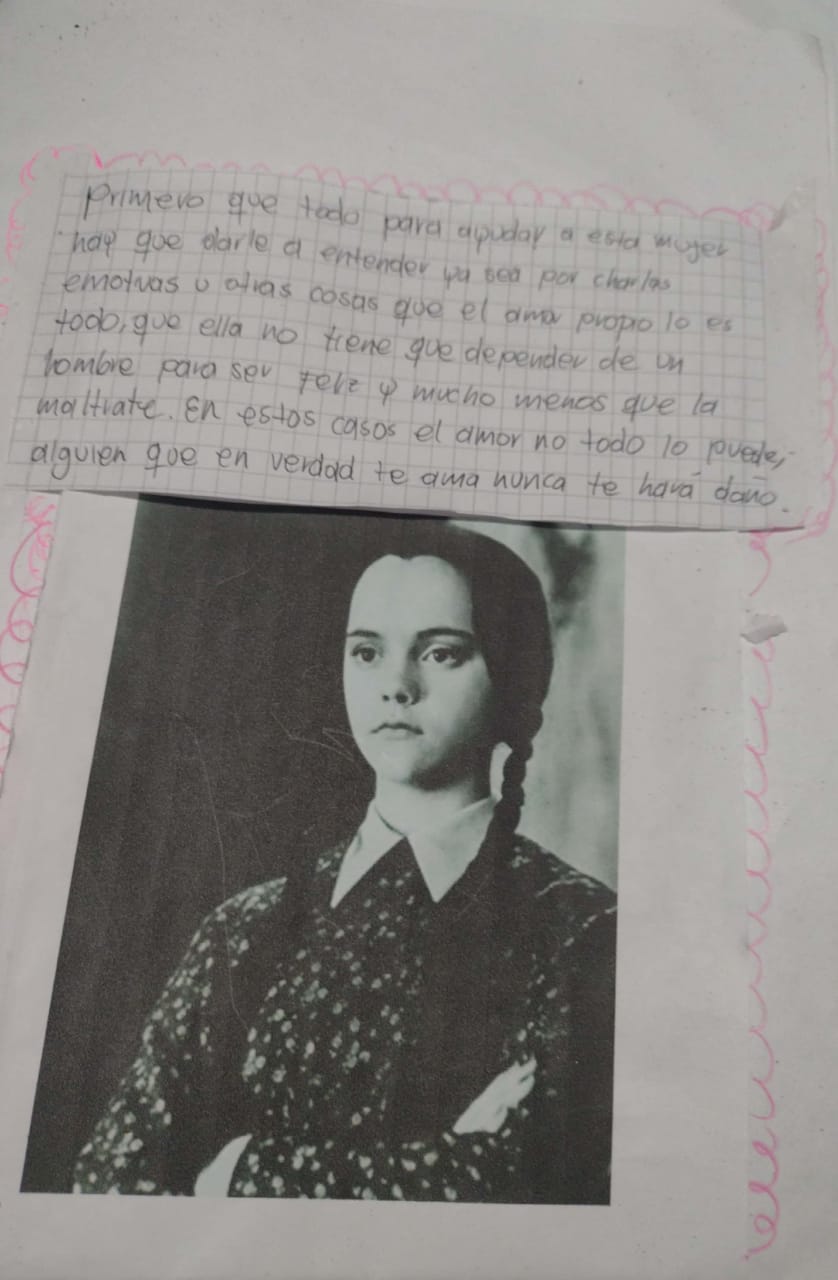 Primero que todo para ayudar a esta mujer
hay que darle a entender ya sea por charlas
emotivas u otras cosas que el amor propio lo es
todo, que ella no tiene que depender de un
hombre para ser feliz y mucho menos que la
maltrate. En estos casos el amor no todo lo puede,
alguien que en verdad te ama nunca te hará daño.